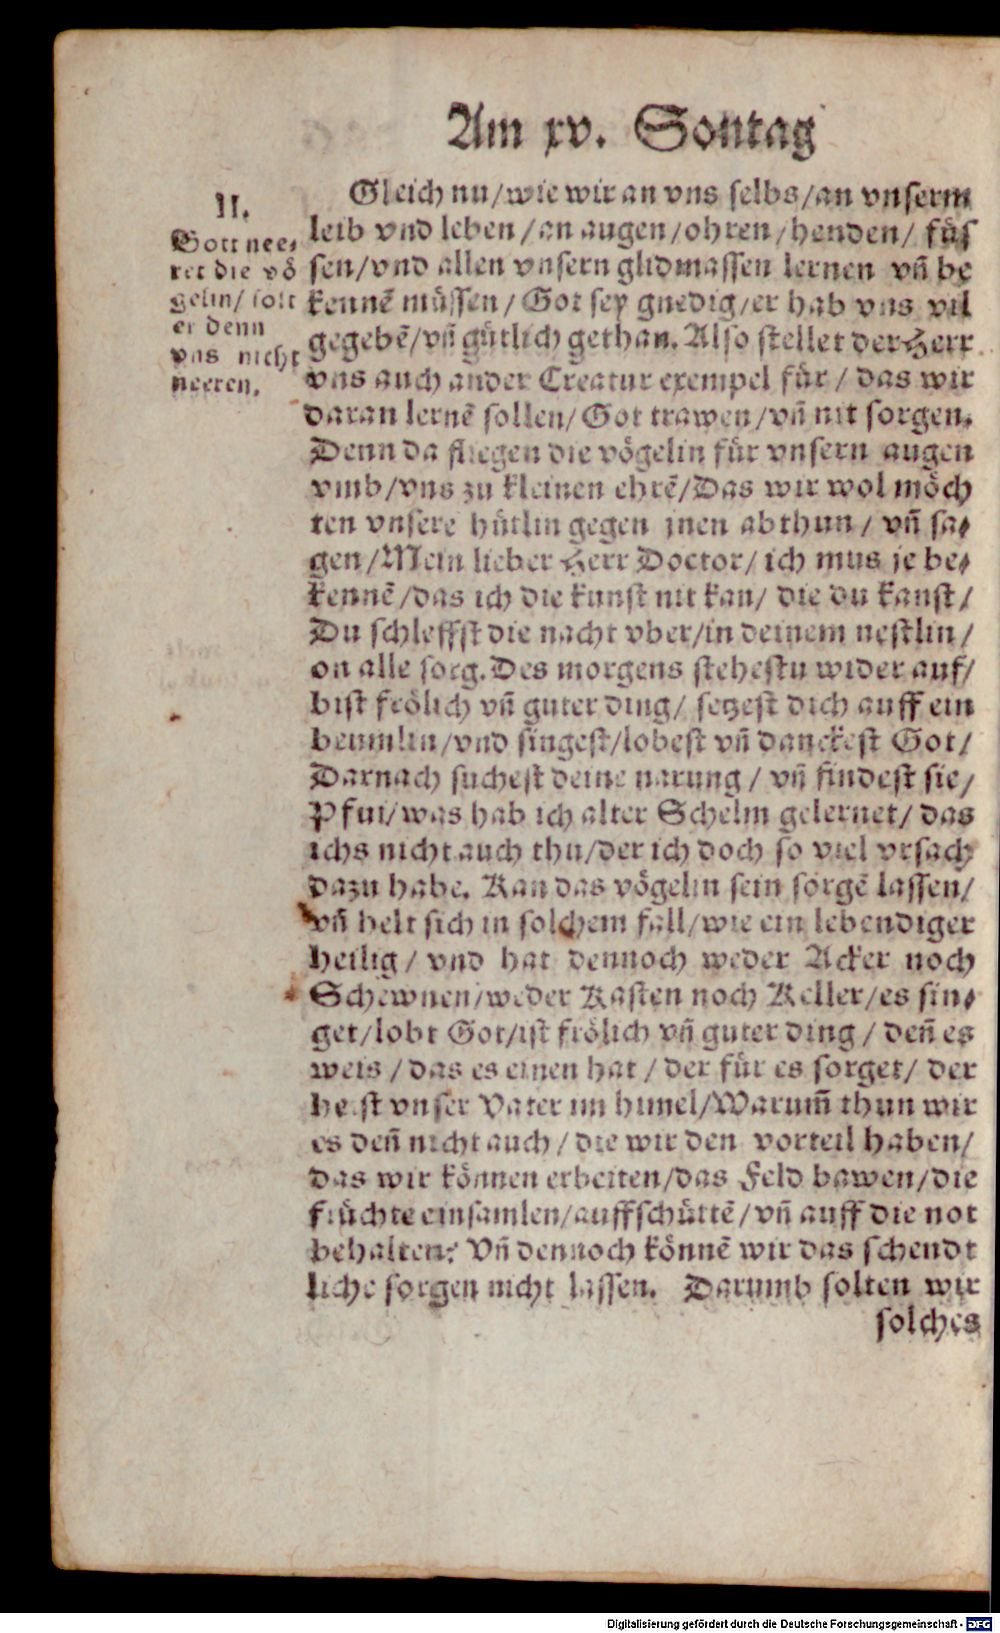 Am xv. Sontag
II.
Gott nee⸗
ret die vö
gelin/ solt
er denn
vns nicht
neeren.
Gleich nu/wie wir an vns selbs/an vnserm
leib vnd leben/an augen/ohren/henden/ füs
sen/vnd allen vnsern glidmassen lernen vñ be
kennẽ müssen/ Got sey gnedig/er hab vns vil
gegebẽ/vñ gütlich gethan. Also stellet der Herr
vns auch ander Creatur exempel für/ das wir
daran lernẽ sollen/ Got trawen/vñ nit sorgen.
Denn da fliegen die vögelin für vnsern augen
vmb/vns zu kleinen ehrẽ/Das wir wol möch
ten vnsere hütlin gegen jnen abthun/ vñ sa⸗
gen/Mein lieber Herr Doctor/ ich mus je be⸗
kennẽ/das ich die kunst nit kan/ die du kanst/
Du schleffst die nacht vber/in deinem nestlin/
on alle sorg. Des morgens stehestu wider auf/
bist frölich vñ guter ding/ setzest dich auff ein
beumlin/vnd singest/lobest vñ danckest Got/
Darnach suchest deine narung/ vñ findest sie/
Pfui/was hab ich alter Schelm gelernet/ das
ichs nicht auch thu/der ich doch so viel vrsach
dazu habe. Kan das vögelin sein sorgẽ lassen/
vñ helt sich in solchem fall/wie ein lebendiger
heilig/ vnd hat dennoch weder Acker noch
Schewnen/weder Kasten noch Keller/es sin⸗
get/lobt Got/ist frölich vñ guter ding/ deñ es
weis/das es einen hat/ der für es sorget/ der
heist vnser Vater im himel/Warum̃ thun wir
es deñ nicht auch/die wir den vorteil haben/
das wir können erbeiten/das Feld bawen/die
früchte einsamlen/auffschüttẽ/vñ auff die not
behalten? Vñ dennoch könnẽ wir das schendt
liche sorgen nicht lassen. Darumb solten wir
solches
Digitalisierung gefördert durch die Deutsche Forschungsgemeinschaft - DFG